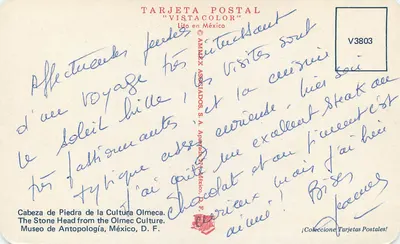 TARJETA POSTAL
"VISTACOLOR"
Lito en México
V3803
Affectueuses pensées
d'un voyage très intéressant
le soleil brille, les visites sont
très passionnantes et la cuisine
typique assez curieuse, hier soir
j'ai goûté un excellent steak au
chocolat et au piment c'est
curieux mais j'ai bien
aimé! Bises
© AMMEX ASOCIADOS, S. A. México, D. F.
Cabeza de Piedra de la Cultura Olmeca.
The Stone Head from the Olmec Culture.
Museo de Antopología, México, D. F.
¡Coleccione Tarjetas Postales!